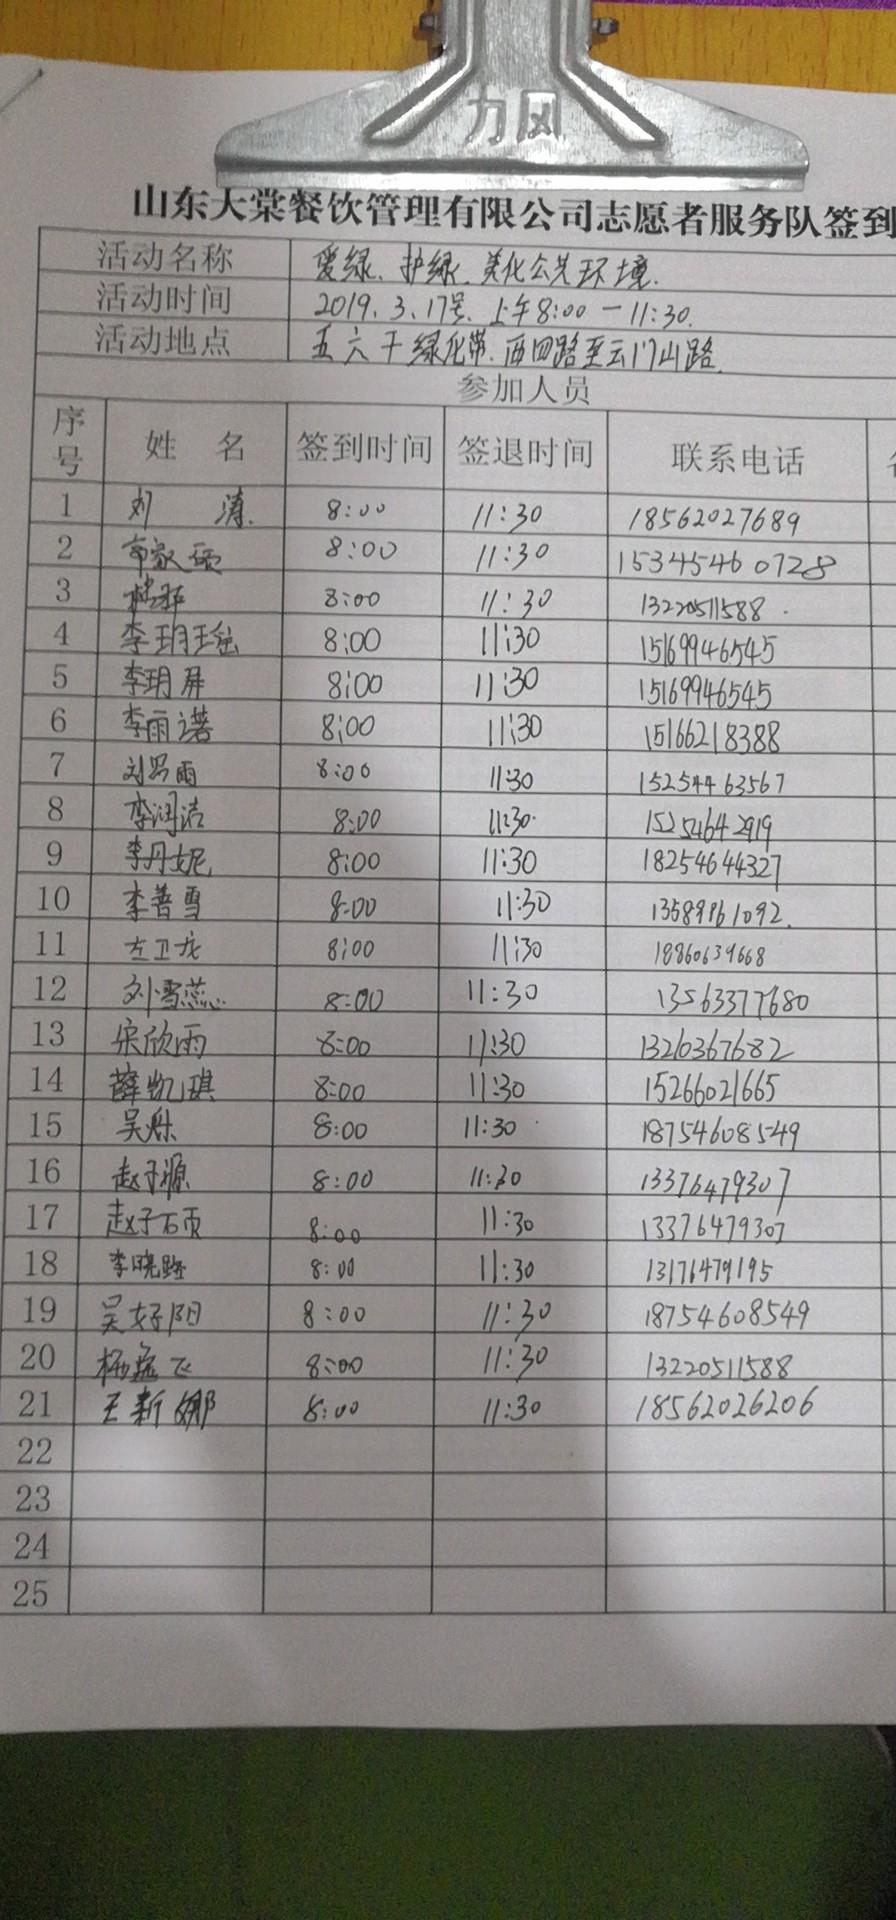 力风
山东大棠餐饮管理有限公司志愿者服务队签到
活动名称 爱绿、护绿、美化公共环境.
活动时间 2019.3.17号.上午8:00-11:30.
活动地点 五六干绿化带.西四路至云门山路.
参加人员
序号 姓 名 签到时间 签退时间 联系电话
1 刘 涛. 8:00 11:30 18562027689
2 8:00 11:30 15345460728
3 8:00 11:30 13220511588.
4 李玥瑶 8:00 11:30 15169946545
5 李玥屏 8:00 11:30 15169946545
6 李雨诺 8:00 11:30 15166218388
7 刘雨 8:00 11:30 15254463567
8 李润洁 8:00 11:30. 15254642919
9 李丹妮 8:00 11:30 18254644327
10 李善雪 8:00 11:30 13589961092.
11 左卫龙 8:00 11:30 18860639668
12 刘雪蕊 8:00 11:30 13563377680
13 宋欣雨 8:00 11:30 13210367682
14 薛凯琪 8:00 11:30 15266021665
15 吴 8:00 11:30 18754608549
16 赵子源 8:00 11:30 13376479307
17 赵子硕 8:00 11:30 13376479307
18 李晓路 8:00 11:30 13176479195
19 吴好阳 8:00 11:30 18754608549
20 杨孟飞 8:00 11:30 13220511588
21 王新娜 8:00 11:30 18562026206
22
23
24
25